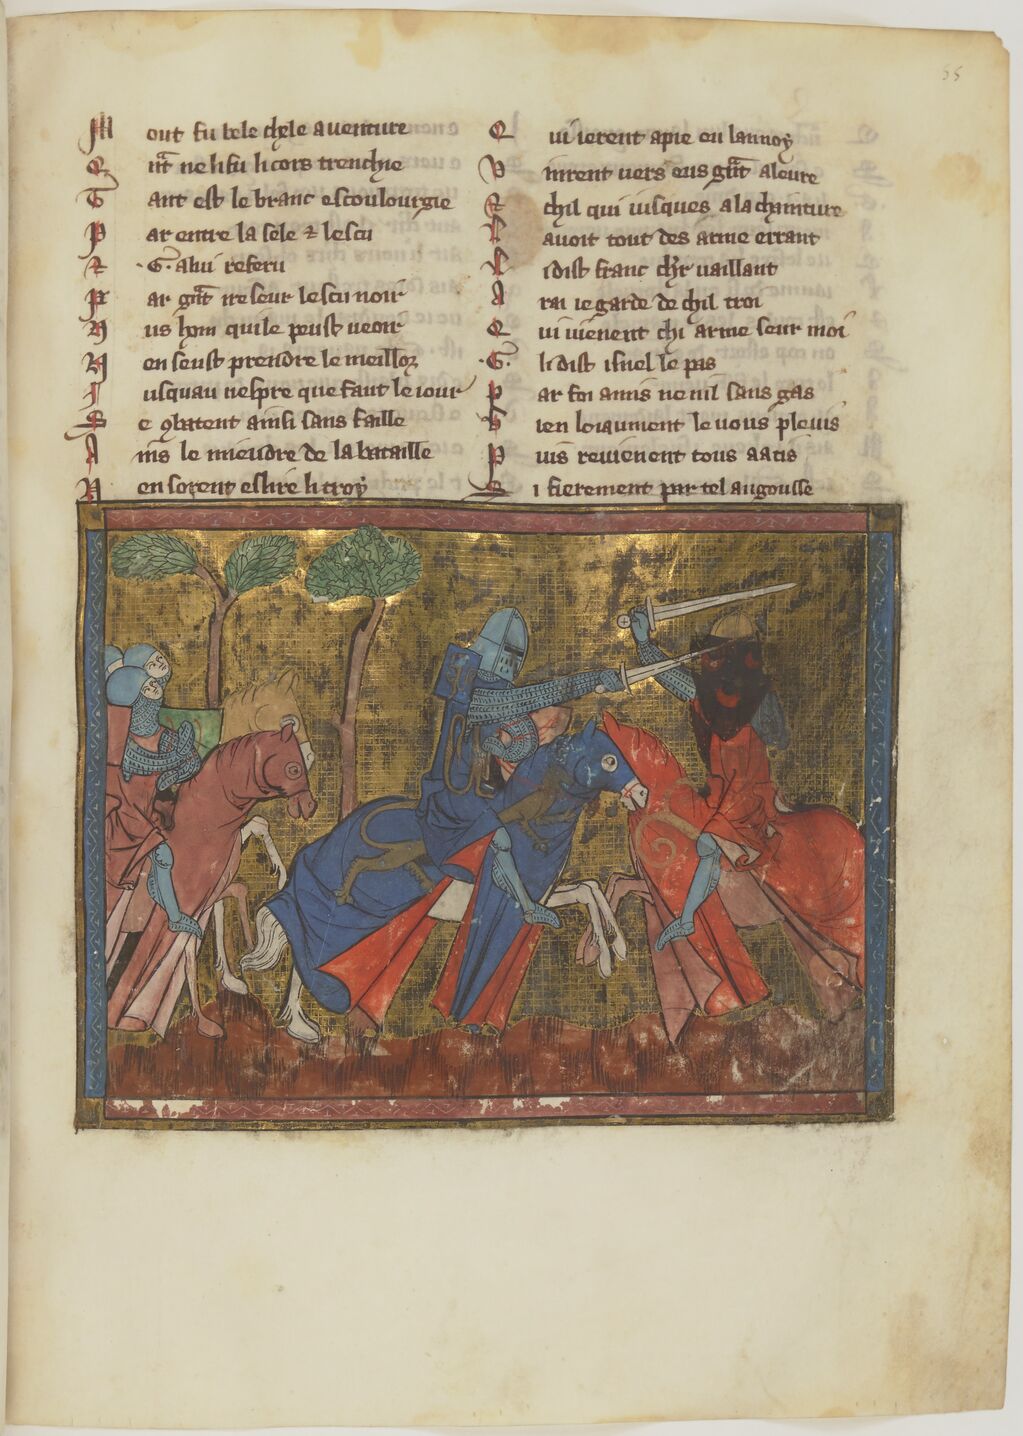 55
M out fu bele chele aventure
Q nt ne li fu li cors trenchie
T ant est le branc escoulourgie
P ar entre la sele ⁊ lescu
R .G. a lui referu
P ar gnt ire seur lescu noir
N us hom qui le peust veoir
N en seust prendre le meillor
I usquau nespre que faut le iour
S e 9batent ainsi sans faille
A ins le mieudre de la bataille
N en sorent eslire li troy
Q ui ierent a pie en lannoy
V inrent uers eus gnt aleure
R chil qui iusques a la chainture
auoit tout des arme errant
L i dist franc chr uaillant
A rai ie garde de chil troi
Q ui uienent chi arme seur moi
.G. li dist isnel le pas
P ar foi amis nenil sans gas
B ien loiaument le uous pleuis
P uis reuienent tous aatis
S i fierement par tel angousse